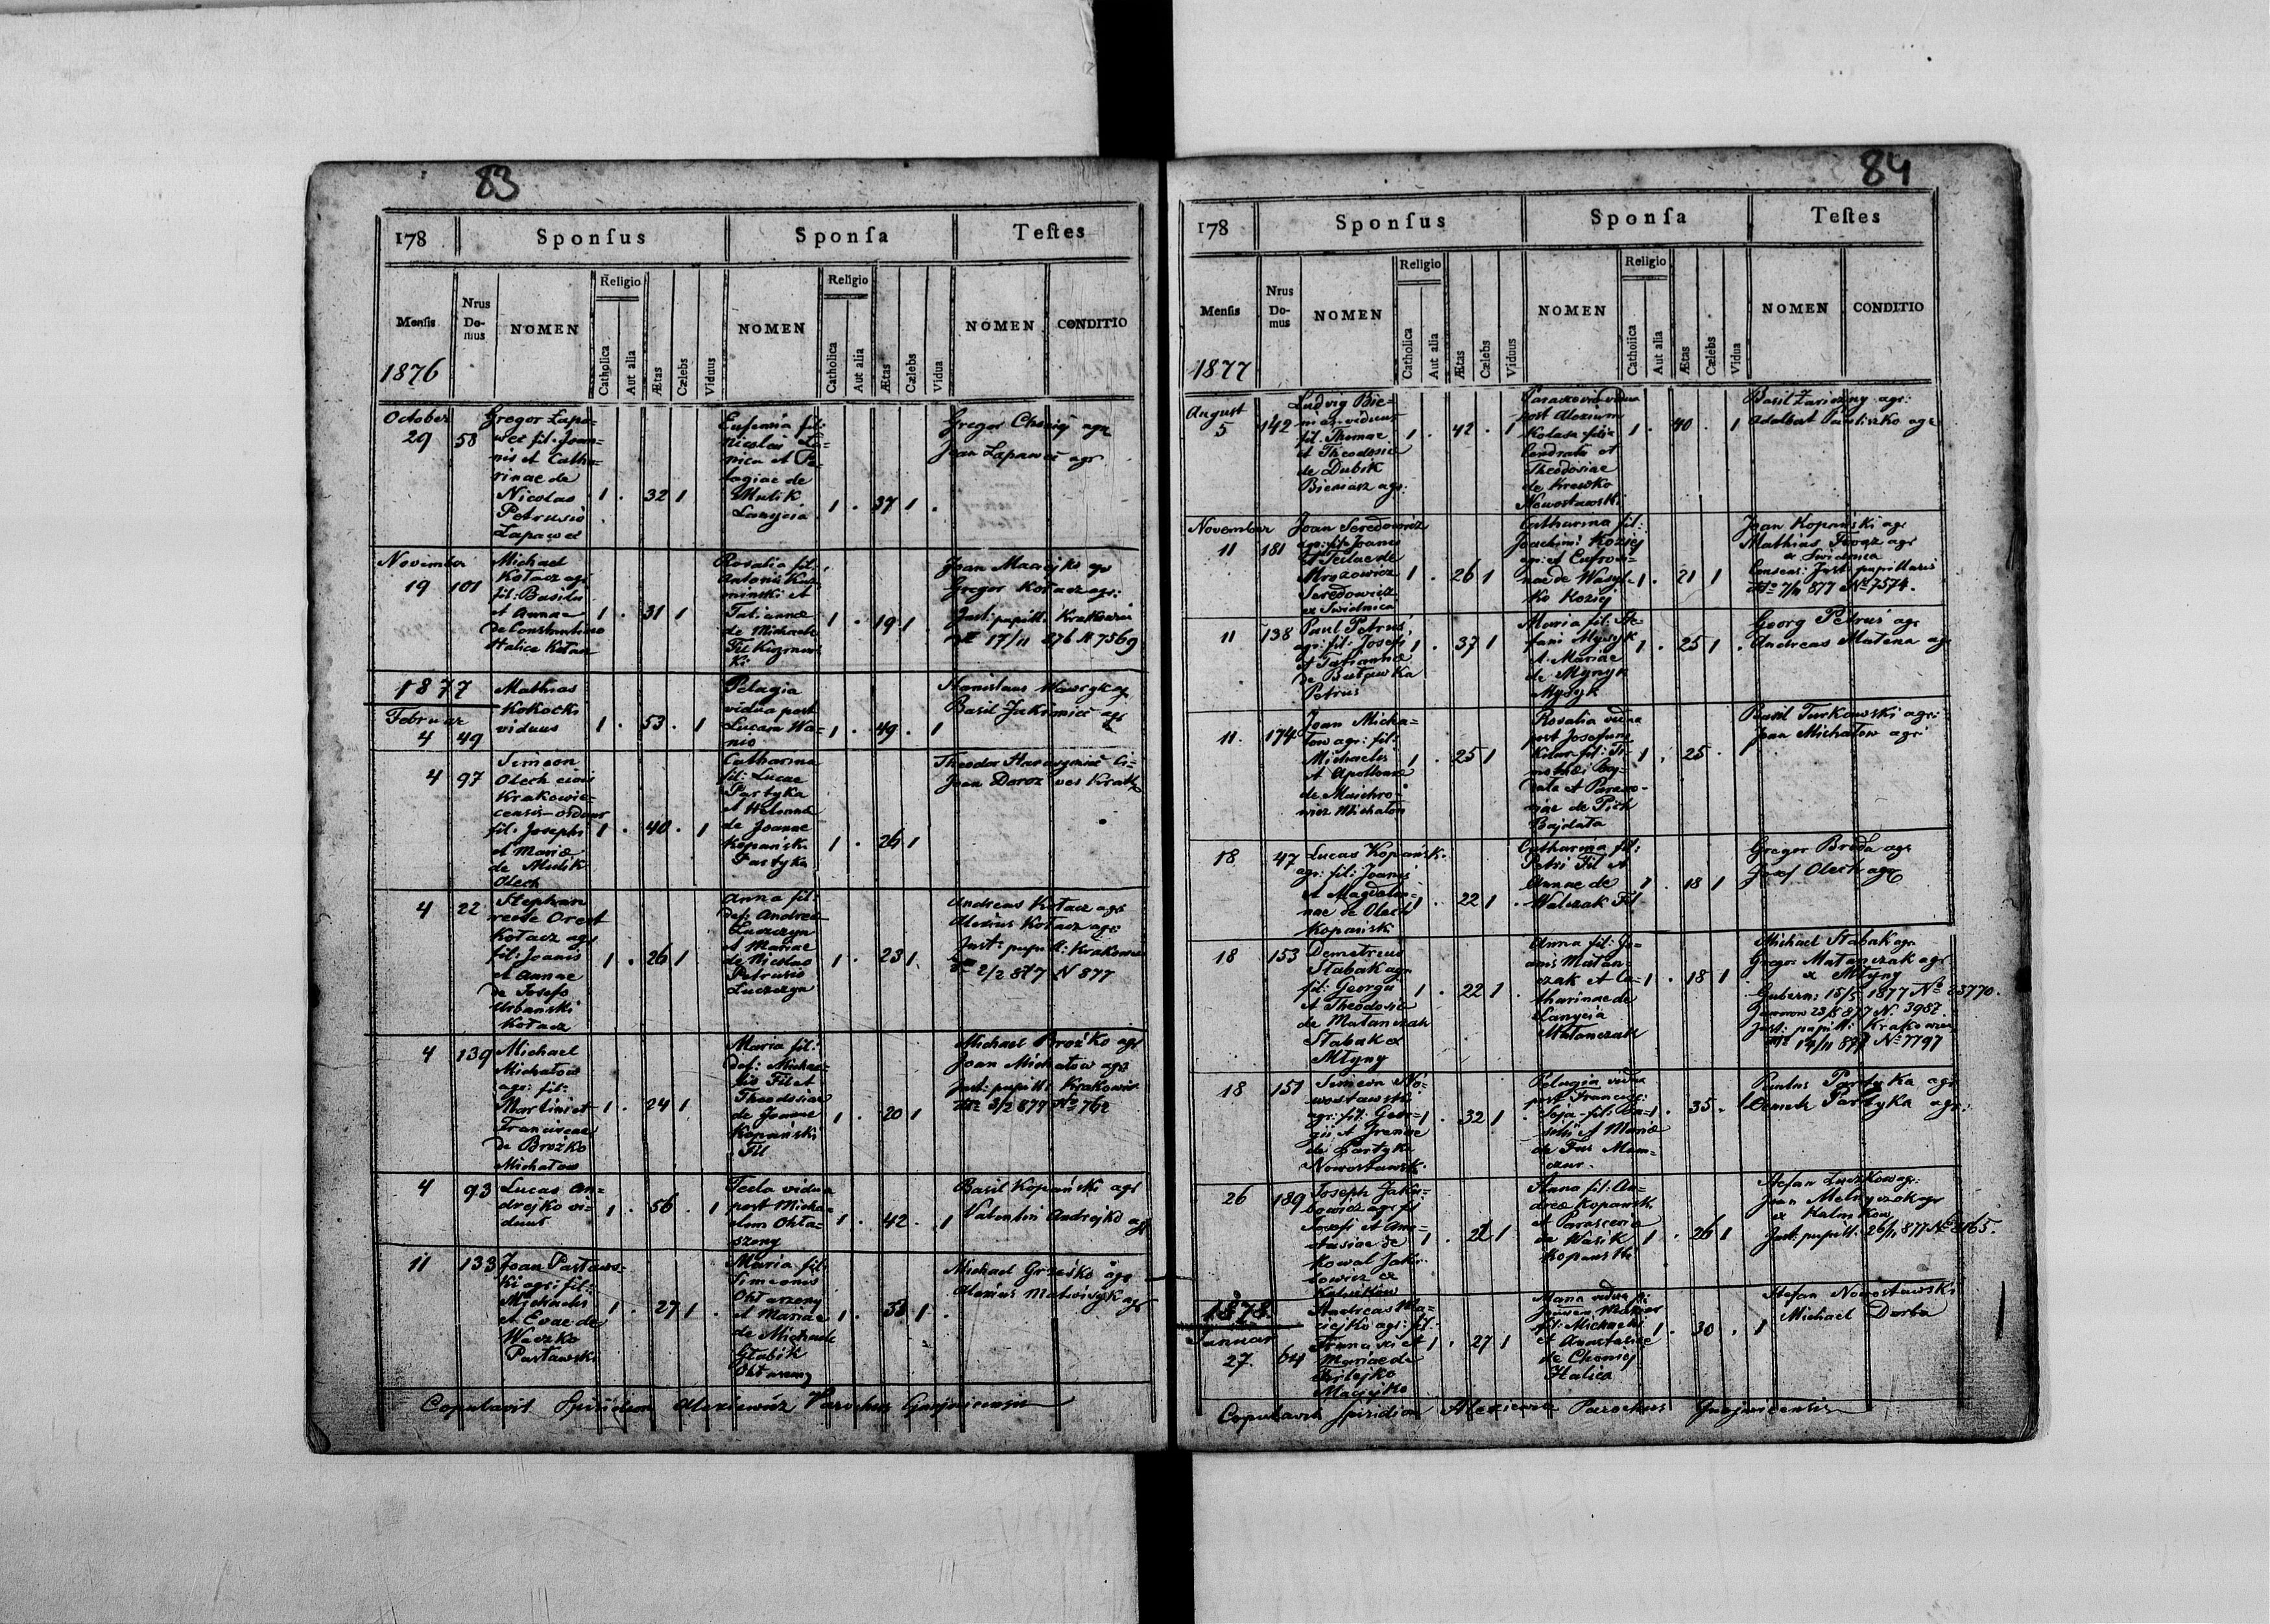 83
178
Sponſus
Sponſa
Teſtes
Menſis
Nrus Do-mus
NOMEN
Religio
Catholica
Aut alia
Ætas
Cælebs
Viduus
NOMEN
Religio
Catholica
Aut alia
Ætas
Cælebs
Vidua
NOMEN
CONDITIO
1876
October
29 58
Gregor Łapa-
wec fil. Joan-
nis et Catha-
rinae de
Nicolao
Petrusio
Łapawec
1 . 32 1
Eufemia fil:
Nicolai
et Pe-
lagiae de
Mulik
Lanycia
1 . 37 1 .
Gregor agr
Joan Łapawec agr
November
19 101
Michael
Kołacz agr
fil: Basilii
et Annae
de Constantino
Halica Kołacz
1 . 31 1
Rosalia fil:
Antonii Kuz-
minski et
Tatianna
de Michaele
Fil
1 . 19 1
Joan Maciejko agr
Gregor Kołacz agr:
Just: pupill: Krakowiec
17/11 876 N 7569
1877
Februar
4 49
Mathias
Kokocki
viduus
1 . 53 . 1
Pelagia
vidua post
Lucam Wa-
nio
1 . 49 . 1
Stanislaus Wawryk agr
Basil agr
4 97
Simeon
Olech civis
Krakowie-
censis
fil. Josephi
et Mariæ
de Mulik
Olech
1 . 40 . 1
Catharina
fil: Lucae
Partyka
et Helenae
de Joanne
Kopański
Partyka
1 . 26 1
Theodor
Joan Doroz
4 22
Stephan
recte Orest
Kołacz agr
fil: Joanis
et Annae
de Josefo
Urbański
Kołacz
1 . 26 1
Anna fil:
def: Andreæ
Łuszczyn
et Mariae
de Nicolao
Petrusio
1 . 23 1
Andreas Kołacz agr
Alexius Kołacz agr:
Just: pupill: Krakowiec
2/2 877 N 877
4 139
Michael
Michałow
agr: fil:
Martini et
Franciscae
de Brożko
Michałow
1 . 24 1
Maria fil:
def: Michae-
lis Fil et
Theodosiae
de Joanne
Kopański
Fil
1 . 20 1
Michael Brożko agr
Joan Michałow agr
Just: pupill: Krakowiec
3/2 877 No 762
4 93
Lucas An-
drejko vi-
duus
1 . 56 . 1
Tecla vidua
post Micha-
elem Okta-
szony
1 . 42 . 1
Basil Kopański agr
Valentin Andrejko agr
11 133
Joan Pastaws-
ki agr: fil:
Michaelis
et Evae de
Waszko
Pastawski
1 . 27 1 .
Maria fil:
Simeonis
et Mariae
de Michaele
Głabik
1 . 33 1 .
Michael Grześko agr
Alexius agr
Copulavit Spiridion Alexiewicz Parochus
84
178
Sponſus
Sponſa
Teſtes
Menſis
Nrus Do-mus
NOMEN
Religio
Catholica
Aut alia
Ætas
Cælebs
Viduus
NOMEN
Religio
Catholica
Aut alia
Ætas
Cælebs
Vidua
NOMEN
CONDITIO
1877
August
5 142
Ludvig Bie-
masz viduus
fil. Thomae
et Theodosiæ
de Dubik
Biemasz agr:
1 . 42 . 1
vidua
post Alexium
filia
et
Theodosiae
de Krowko
Nowosławski
1 . 40 . 1
Basil Zariczny agr:
Adalbert Pawliszko agr
November
11 181
Joan Seredowicz
agr: fil: Joanis
et Teclae de
Mrozowicz
Seredowicz
ex Swidnica
1 . 26 1
Catharina fil:
Joachimi Koziej
agr: et Eufrosi-
nae de Wasyl-
ko Koziej
1 . 21 1
Joan Kopański agr
Mathias agr
ex Swidnica
Consens: Just: pupillaris
7/11 877 No 7574.
11 138
Paul Petrus
agr: fil: Josefi
et Tatiannæ
de
Petrus
1 . 37 1
Maria fil. Ste-
fani Mysyk
et Mariae
de Mynyk
Mysyk
1 . 25 1 .
Georg Petrus agr
Andreas Matena agr
11. 174
Joan Micha-
low agr: fil:
Michaelis
et Apolloniæ
de
Michałow
1 . 25 1
Rosalia vidua
post Josefum
fil: Ti-
mothei Baj-
data et Paraxe-
niae de Pich
Bajdata
1 . 25 .
Basil Turkowski agr:
Joan Michałow agr:
18 47
Lucas Kopański
agr: fil: Joanis
et Magdale-
nae de Olech
Kopański
1 . 22 1
Catharina fil:
Petri Fil et
Annae de
Walczak Fil
1 . 18 1
Gregor Broda agr
Josef Olech agr
18 153
Demetrius
Stabak agr
fil: Georgii
et Theodosiæ
de Matanczak
Stabak ex
Młyny
1 . 22 1 .
Anna fil: Jo-
anis Matan-
czak et Ca-
tharinae de
Lanycia
Matanczak
1 . 18 1
Michael Stabak agr
Gregor Matanczak agr
ex Młyny
Gubern: 15/5 1877 No 23770.
Jaworow 23/5 877 N. 3987.
Just: pupill: Krakowiec
14/11 877 No 7797
18 151
Simeon No-
wosławski
agr: fil: Geor-
gii et Irenae
de Partyka
Nowosławski
1 . 32 1
Pelagia vidua
post Francisc:
Soja fil: Ba-
silii et Mariæ
de Fus Mam-
czur.
1 . 35 . 1
Paulus Partyka agr
Demeter Partyka agr:
26 189
Joseph Jaku-
bowicz agr: fil
Josefi et Ana-
stasiae de
Kowal Jaku-
bowicz ex
Kalnikow
1 . 22 1
Anna fil: An-
dreæ Kopański
et Parascena
de Wasik
Kopański
1 . 26 1
Stefan Łuczkow agr:
Joan Melnyczok agr
ex Kalnikow
Just: pupill: 26/11 877 No 8165.
1878
Januar
27. 64
Andreas Ma-
ciejko agr: fil.
et
Mariae de
Maciejko
1 . 27 1
Maria vidua p:
fil: Michaelis
et Anastasiæ
de Chomiej
Halica
1 . 30 . 1
Stefan Nowosławski
Michael Dorba
Copulavit Spiridion Alexiewicz Parochus